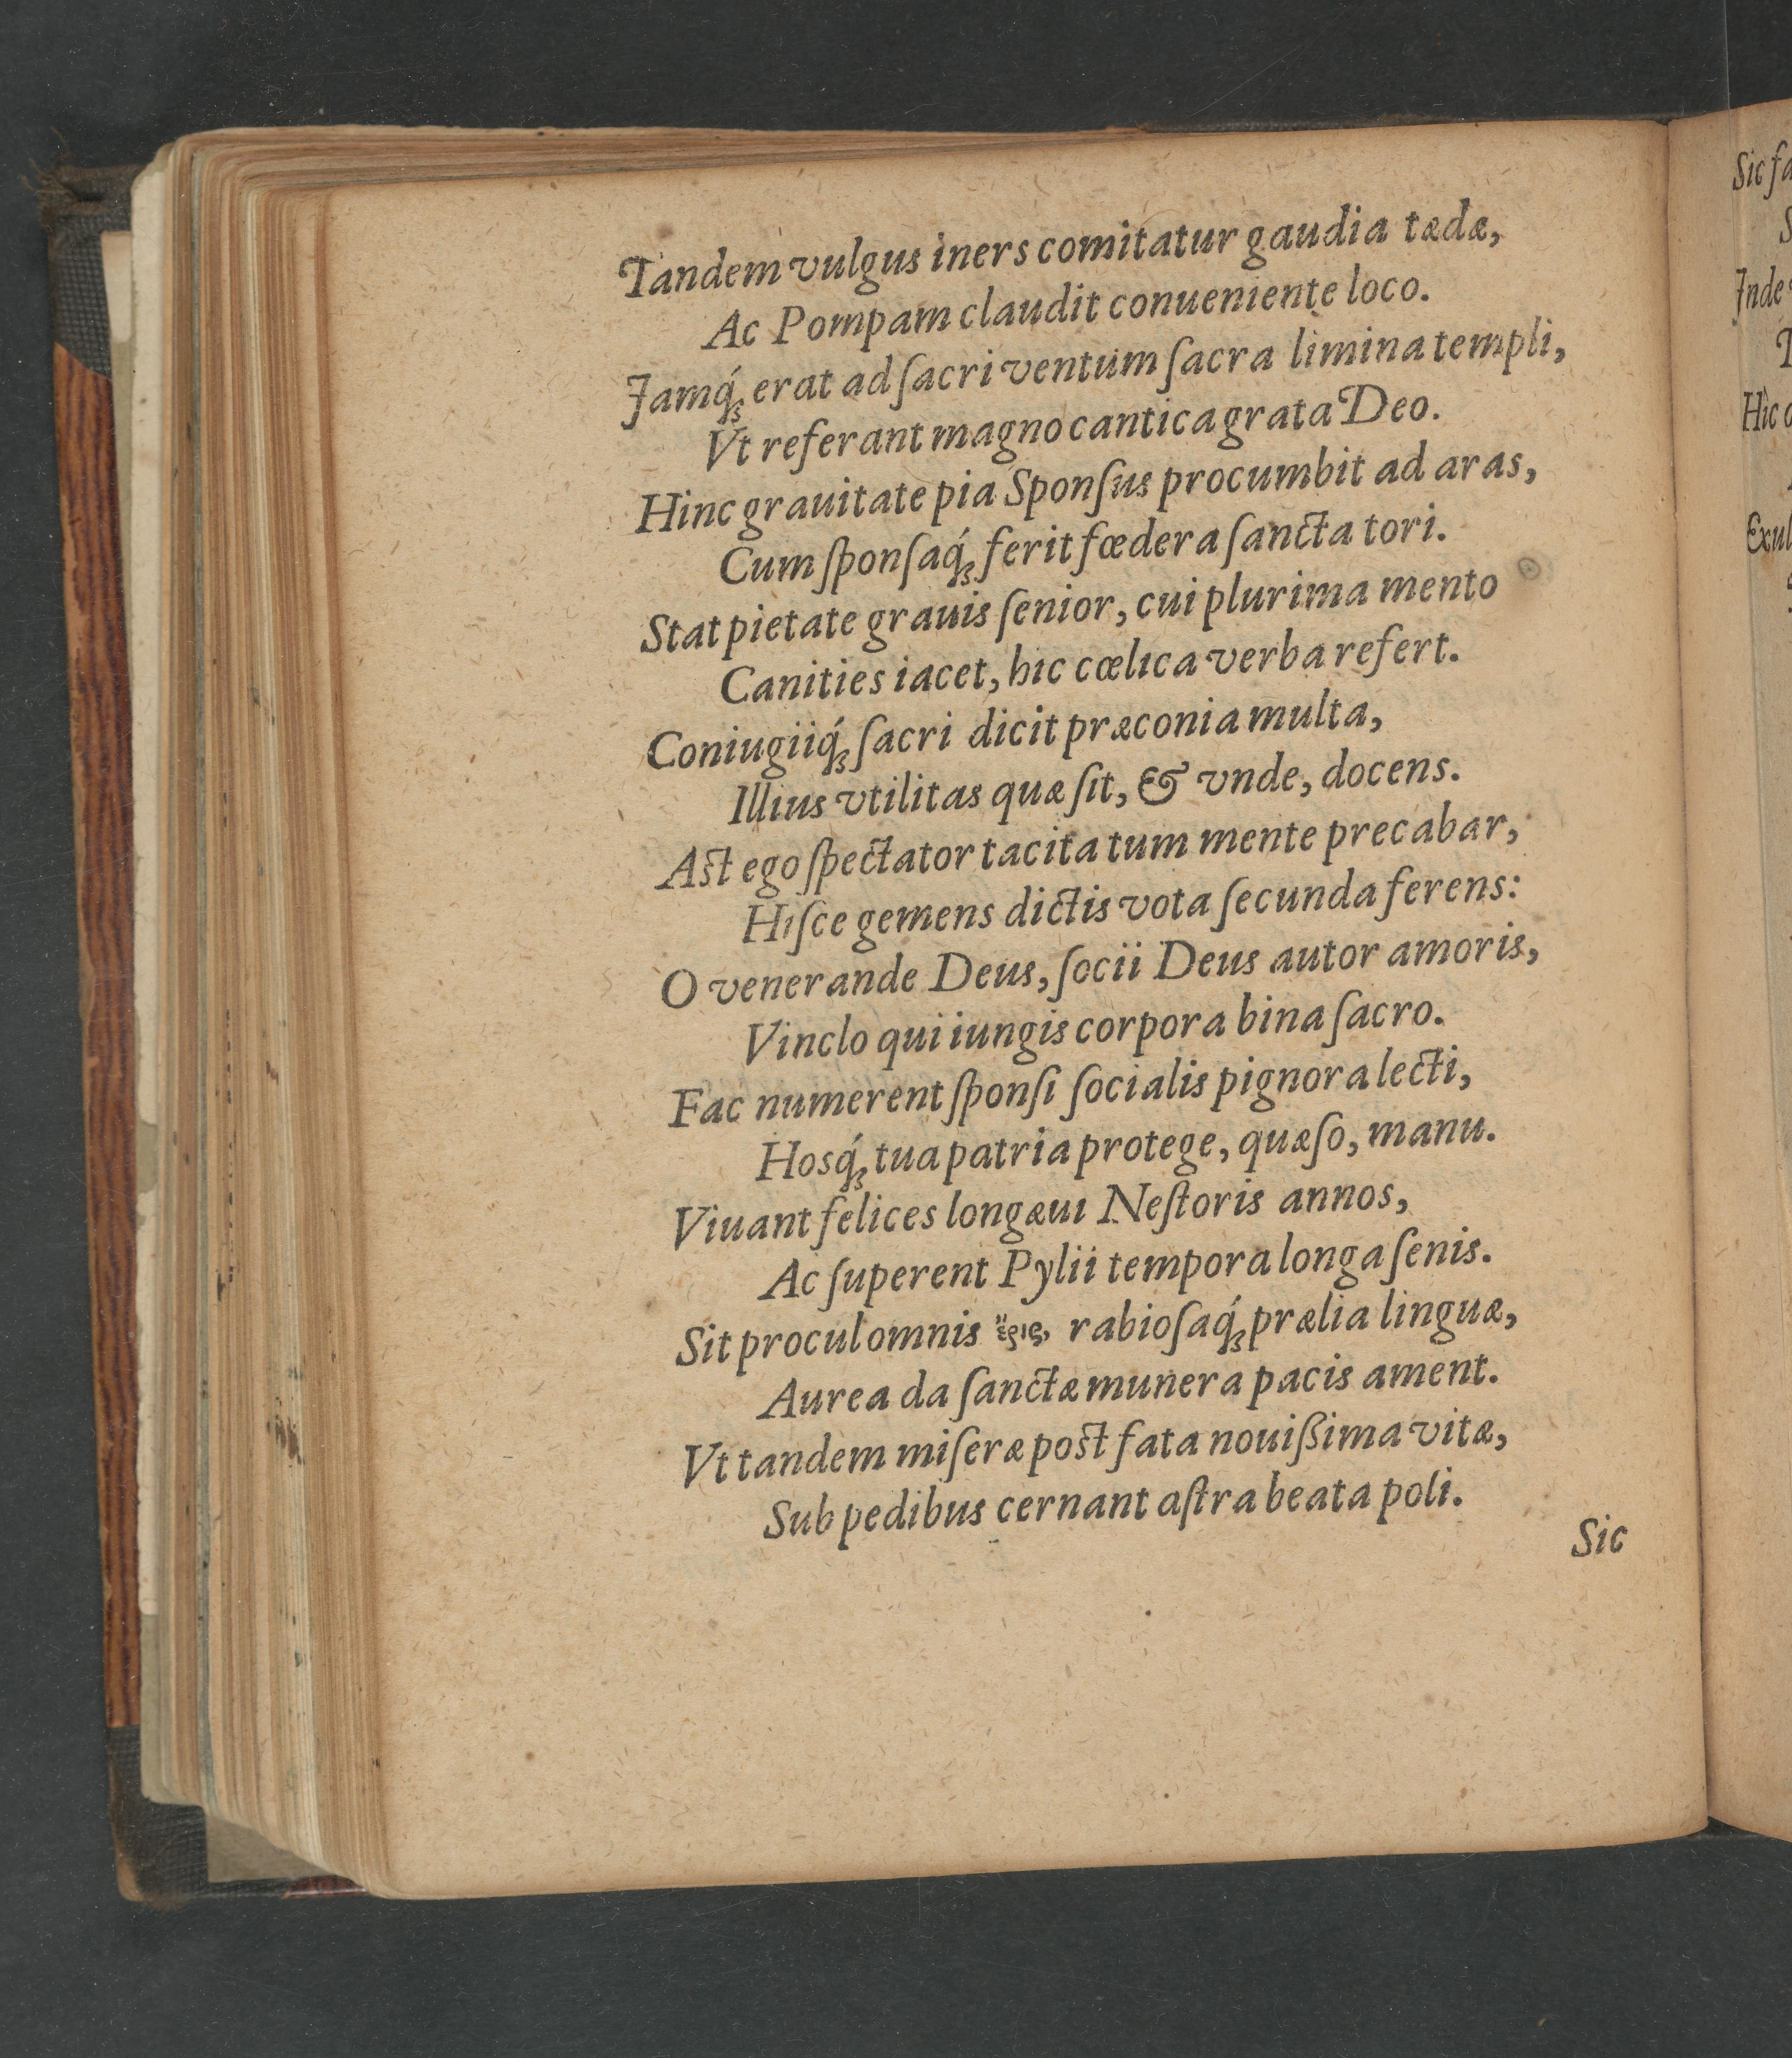 Tandem vulgus iners comitatur gaudia tædæ,
Ac Pompam claudit conueniente loco.
Jamq́ꝫ erat ad ſacri ventum ſacra limina templi,
Vt referant magno cantica grata Deo.
Hinc grauitate pia Sponſus procumbit ad aras,
Cum ſponſaq́ꝫ ferit fœdera ſancta tori.
Stat pietate grauis ſenior, cui plurima mento
Canities iacet, hic cœlica verba refert.
Coniugiiq́ꝫ ſacri dicit præconia multa,
Illius vtilitas quæ ſit, & vnde, docens.
Ast ego ſpectator tacita tum mente precabar,
Hiſce gemens dictis vota ſecunda ferens:
O venerande Deus, ſocii Deus autor amoris,
Vinclo qui iungis corpora bina ſacro.
Fac numerent ſponſi ſocialis pignora lecti,
Hosq́ꝫ tua patria protege, quæſo, manu.
Viuant felices longæui Neſtoris annos,
Ac ſuperent Pylii tempora longa ſenis.
Sit procul omnis ἔρις, rabioſaq́ꝫ prælia linguæ,
Aurea da ſanctæ munera pacis ament.
Vt tandem miſeræ post fata nouißima vitæ,
Sub pedibus cernant aſtra beata poli.
Sic
Sic
Jnde
Hic